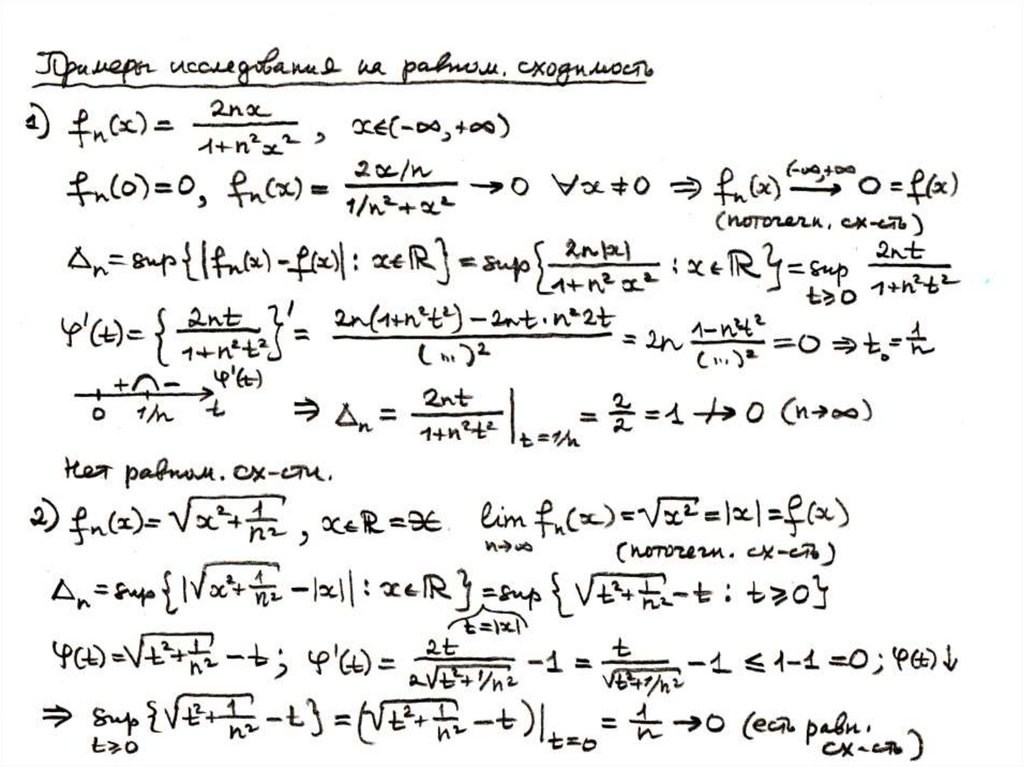 Примеры исследования на равном. сходимость
1) fₙ(x) = 2nx/(1+n²x²), x∈(-∞,+∞)
fₙ(0)=0, fₙ(x) = (2x/n)/(1/n²+x²) → 0 ∀x≠0 ⇒ fₙ(x) →^{(-∞,+∞)} 0 = f(x)
(поточечн. сх-сть)
Δₙ = sup{|fₙ(x) - f(x)| : x∈ℝ} = sup{2n|x|/(1+n²x²) : x∈ℝ} = sup_{t≥0} 2nt/(1+n²t²)
φ'(t) = {2nt/(1+n²t²)}' = (2n(1+n²t²) - 2nt·n²2t)/(...)² = 2n (1-n²t²)/(...)² = 0 ⇒ t₀ = 1/n
+ − φ'(t)
0 1/n t ⇒ Δₙ = 2nt/(1+n²t²)|_{t=1/n} = 2/2 = 1 ↛ 0 (n→∞)
Нет равном. сх-сти.
2) fₙ(x) = √(x²+1/n²), x∈ℝ = 𝒳. lim_{n→∞} fₙ(x) = √x² = |x| = f(x)
(поточечн. сх-сть)
Δₙ = sup{|√(x²+1/n²) - |x|| : x∈ℝ} = sup{√(t²+1/n²) - t : t≥0}
t=|x|
φ(t) = √(t²+1/n²) - t; φ'(t) = 2t/(2√(t²+1/n²)) - 1 = t/√(t²+1/n²) - 1 ≤ 1-1 = 0; φ(t)↓
⇒ sup_{t≥0} {√(t²+1/n²) - t} = (√(t²+1/n²) - t)|_{t=0} = 1/n → 0 (есть равн.
сх-сть)